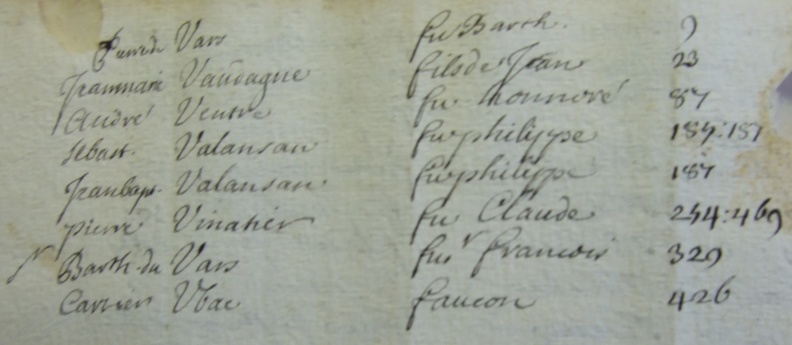 Pierre de Vars fu Barth. 9
Jeanmarie Vaudagne fils de Jean 23
André Ventre fu honnoré 87
Sebast. Valansan fu philippe 187:187
Jeanbap. Valansan fu philippe 187
pierre Vinatier fu Claude 244:469
Barth. du Vars fu sr francois 329
Carrier Ubac faucon 426